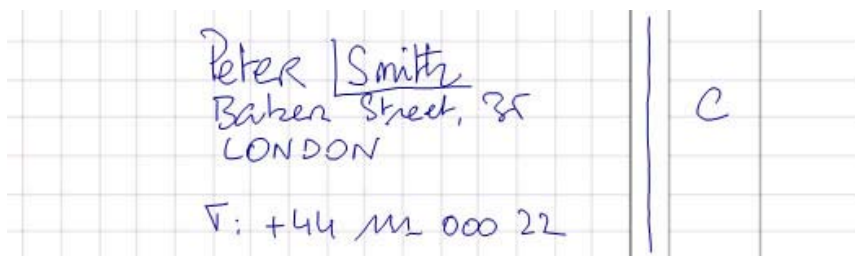 Peter Smith
Baker Street, 35
LONDON
T: +44 111 000 22
C